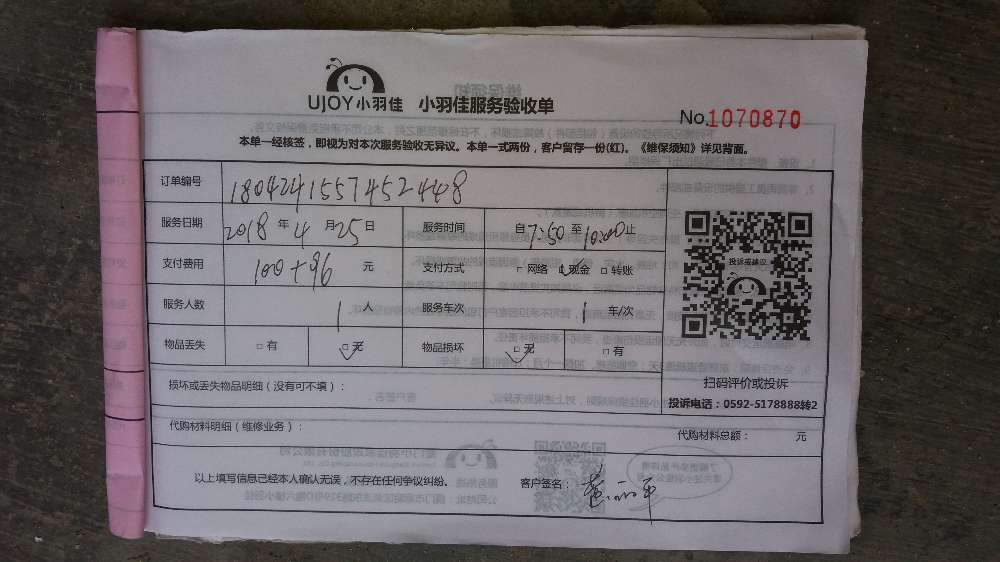 UJOY小羽佳 小羽佳服务验收单
No.1070870
本单一经核签，即视为对本次服务验收无异议。本单一式两份，客户留存一份(红)。《维保须知》详见背面。
订单编号 180424155745244​8
服务日期 2018 年 4 月 25 日 服务时间 自 7:50 至 10:00 止
支付费用 100+96 元 支付方式 □ 网络 □ 现金 □ 转账
服务人数 1 人 服务车次 1 车/次
物品丢失 □ 有 □ 无 物品损坏 □ 无 □ 有
投诉或建议
扫码评价或投诉
投诉电话：0592-5178888转2
损坏或丢失物品明细（没有可不填）：
代购材料明细（维修业务）： 代购材料总额： 元
以上填写信息已经本人确认无误，不存在任何争议纠纷。 客户签名：